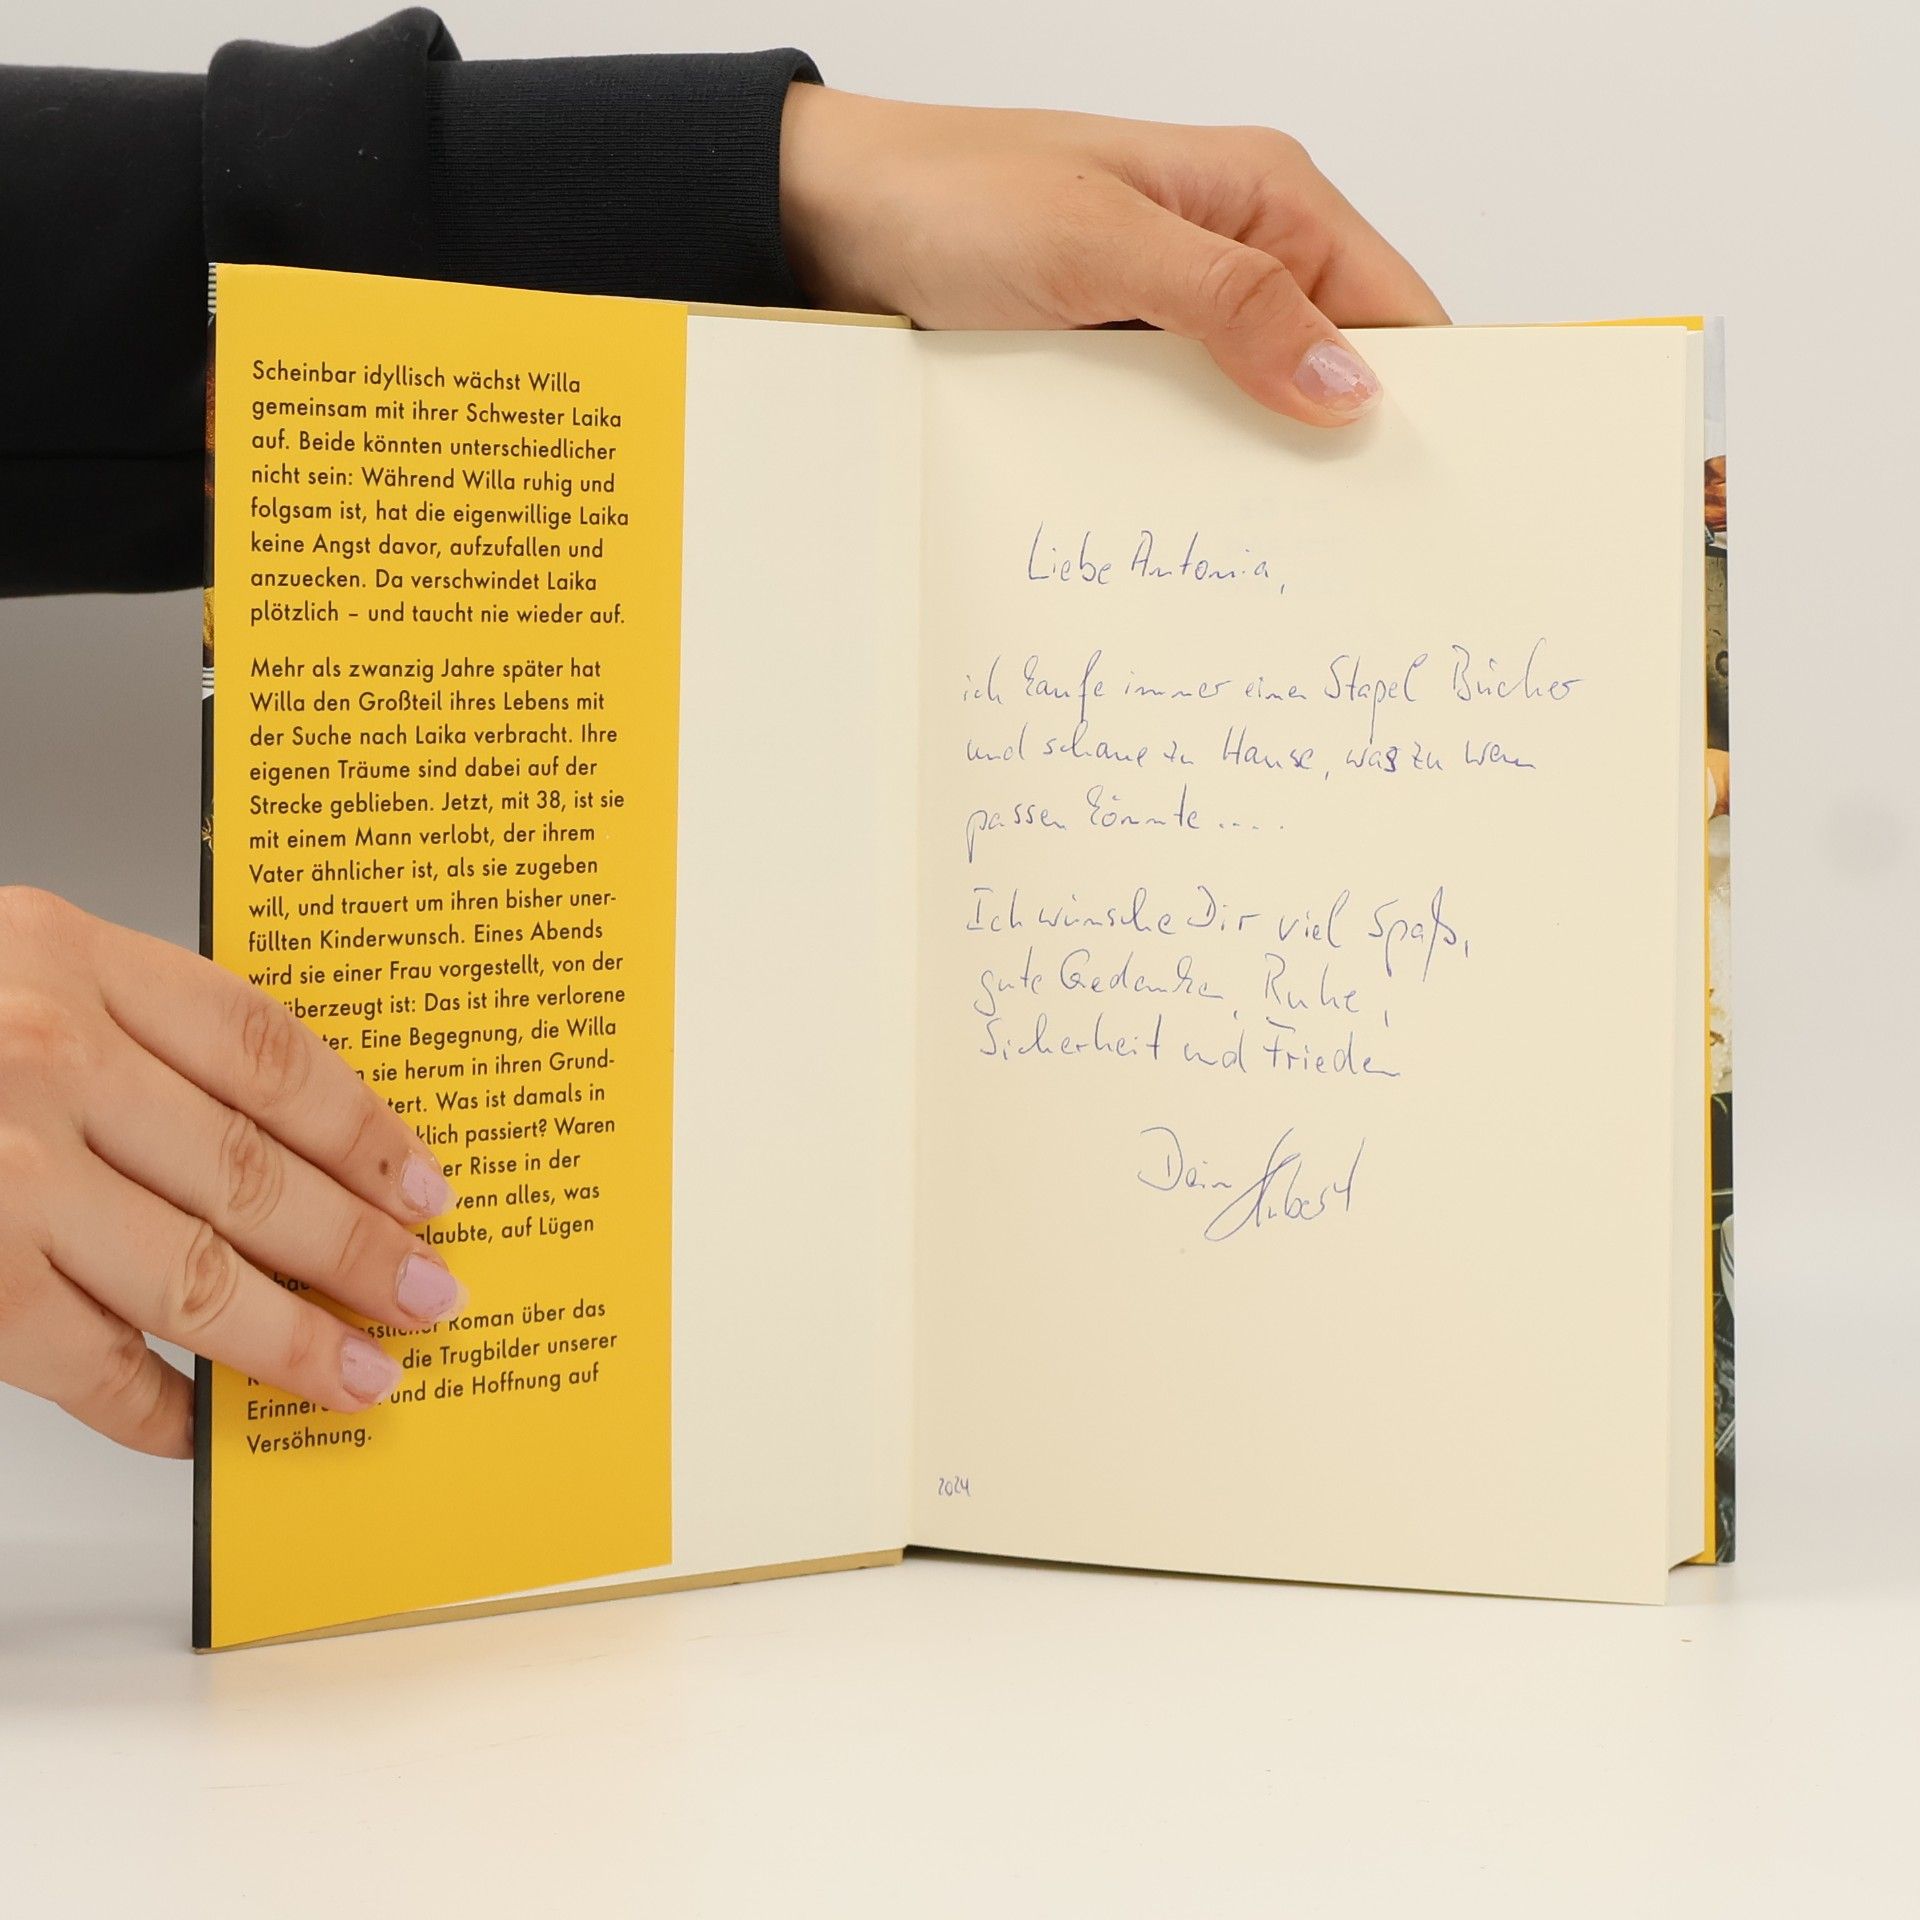 Scheinbar idyllisch wächst Willa
gemeinsam mit ihrer Schwester Laika
auf. Beide könnten unterschiedlicher
nicht sein: Während Willa ruhig und
folgsam ist, hat die eigenwillige Laika
keine Angst davor, aufzufallen und
anzuecken. Da verschwindet Laika
plötzlich – und taucht nie wieder auf.
Mehr als zwanzig Jahre später hat
Willa den Großteil ihres Lebens mit
der Suche nach Laika verbracht. Ihre
eigenen Träume sind dabei auf der
Strecke geblieben. Jetzt, mit 38, ist sie
mit einem Mann verlobt, der ihrem
Vater ähnlicher ist, als sie zugeben
will, und trauert um ihren bisher uner-
füllten Kinderwunsch. Eines Abends
wird sie einer Frau vorgestellt, von der
überzeugt ist: Das ist ihre verlorene
ter. Eine Begegnung, die Willa
sie herum in ihren Grund-
tert. Was ist damals in
klich passiert? Waren
er Risse in der
wenn alles, was
glaubte, auf Lügen
Roman über das
die Trugbilder unserer
und die Hoffnung auf
Versöhnung.
Liebe Antonia,
ich kaufe immer einen Stapel Bücher
und schaue zu Hause, was zu wem
passen könnte ....
Ich wünsche Dir viel Spaß,
gute Gedanken, Ruhe,
Sicherheit und Frieden
Dein Hubert
2024